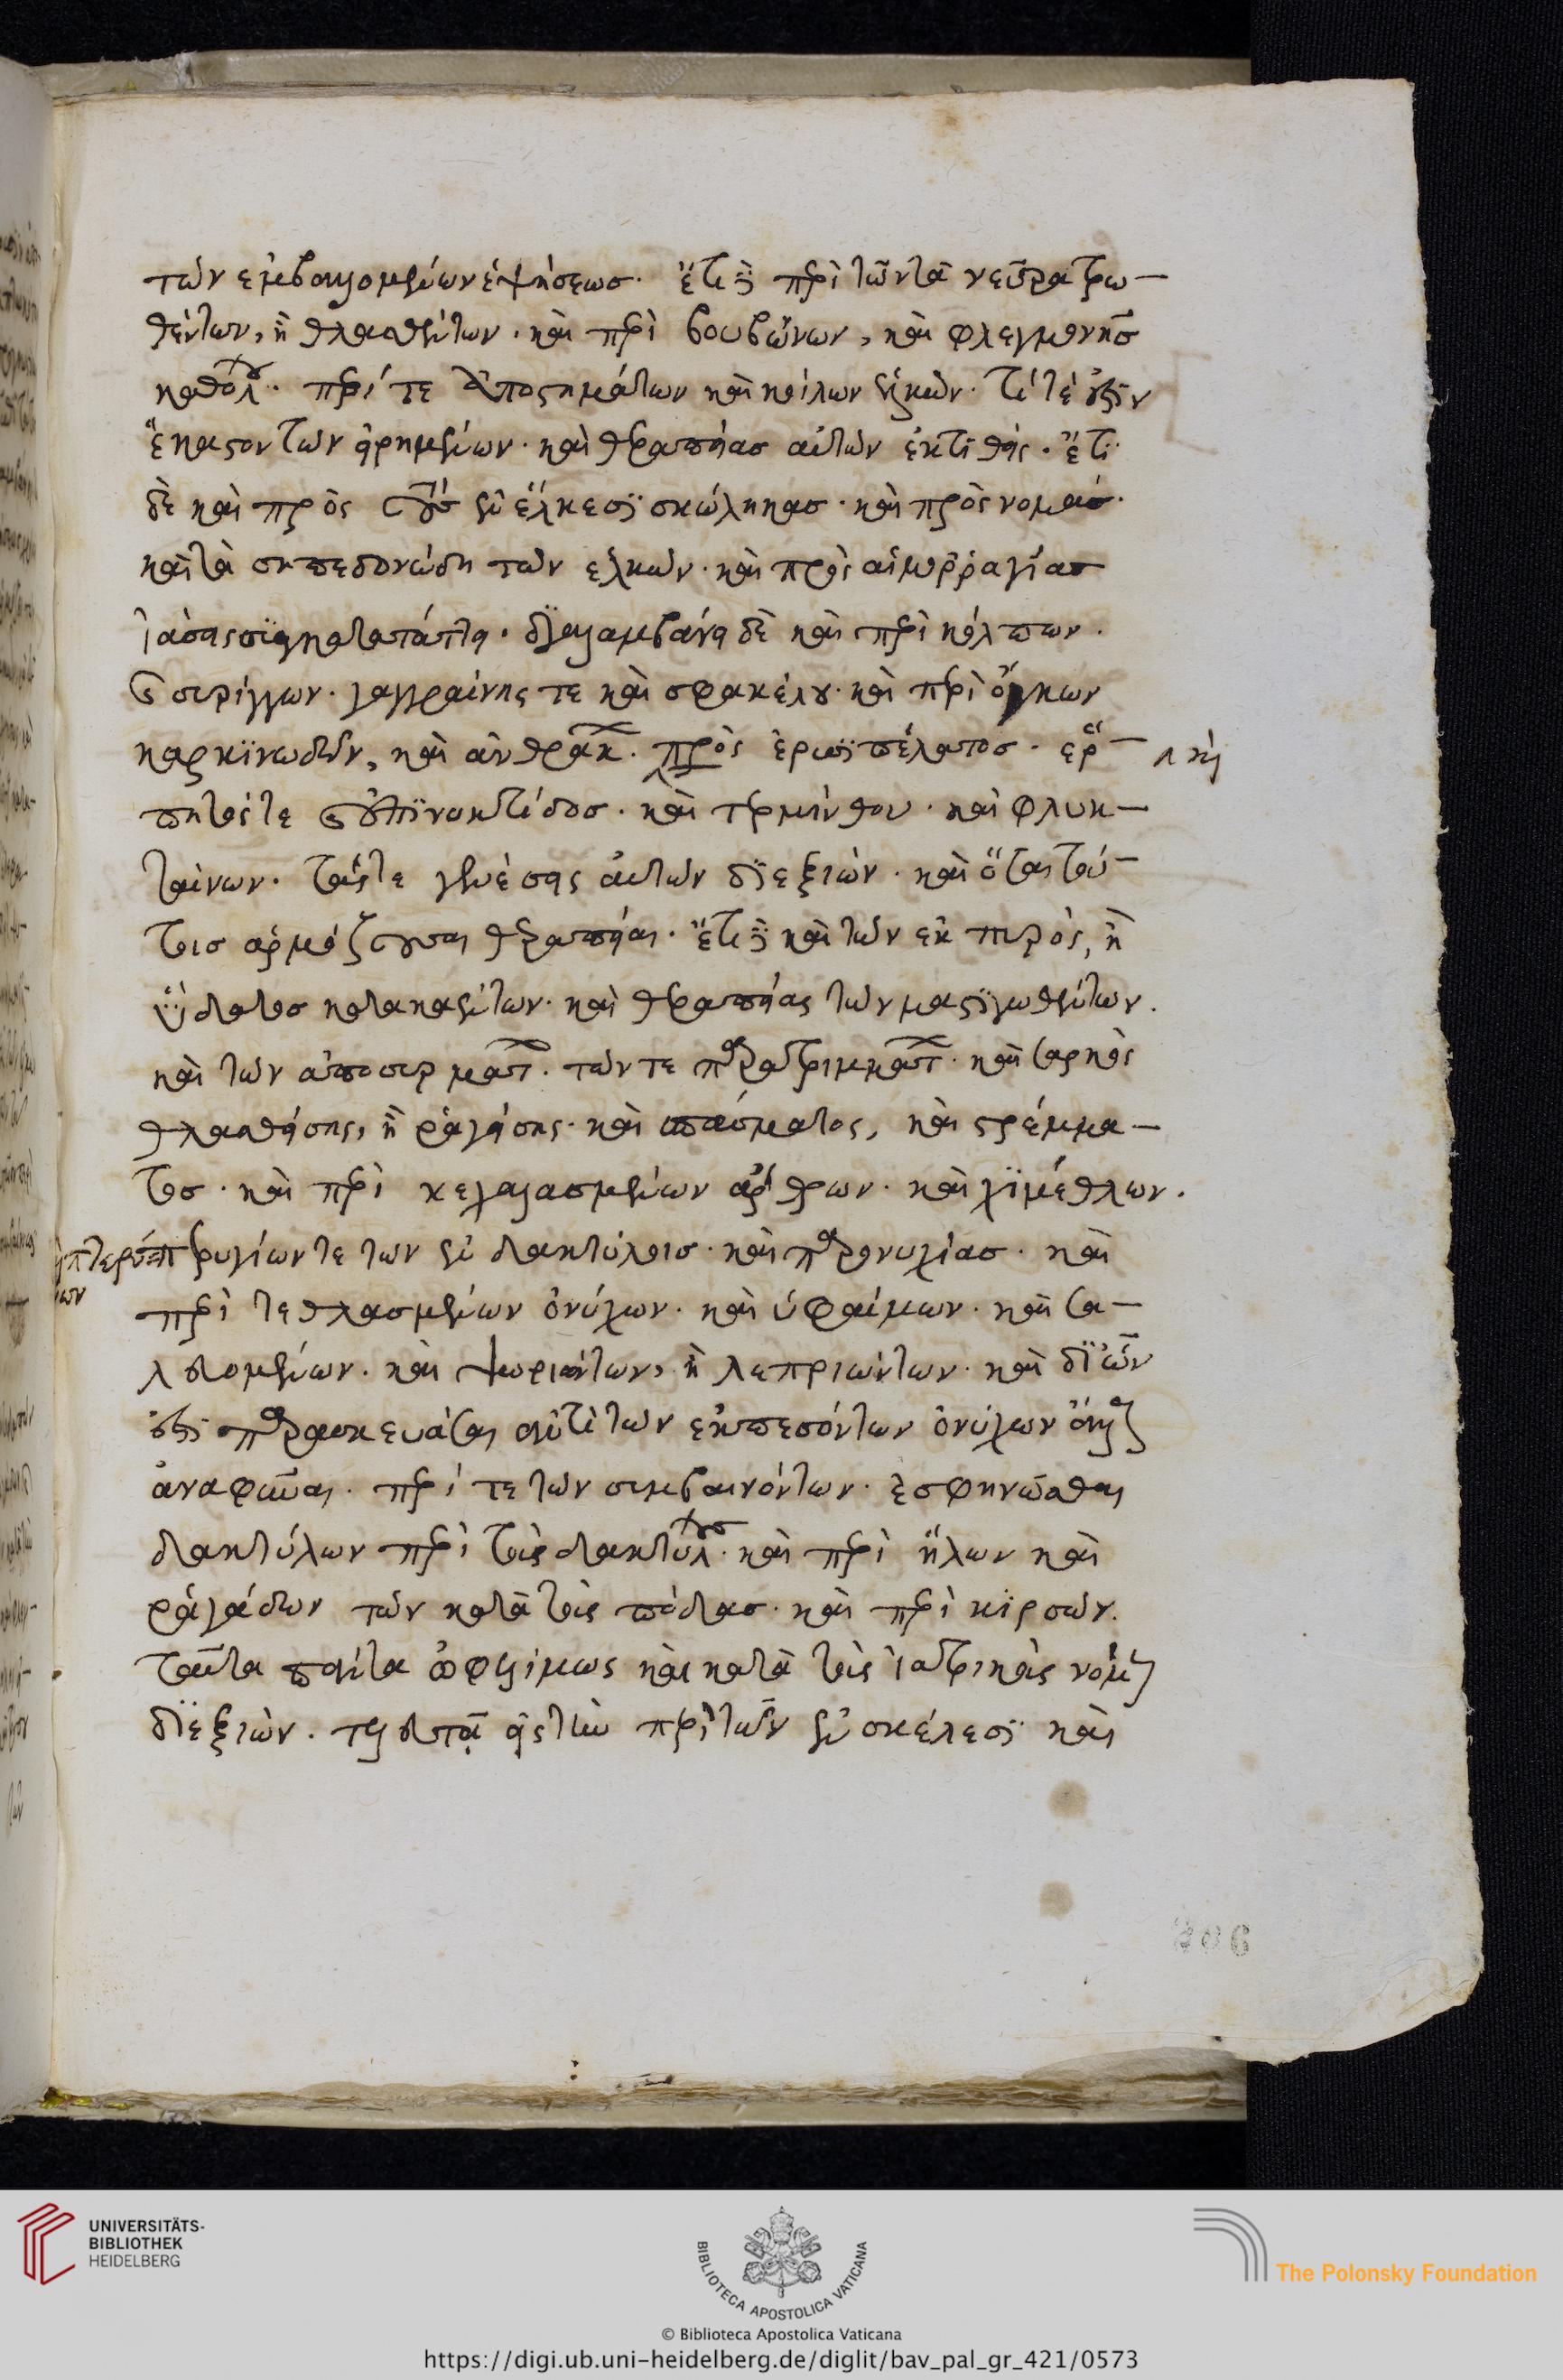 τῶν ἐμβαλλομένων ἑψήσεως· ἔτι δὲ περὶ τῶν τὰ νεῦρα τρω-
θέντων, ἢ θλασθέντων· καὶ περὶ βουβώνων, καὶ φλεγμονῆς
καθόλου· περί τε ἀποστημάτων καὶ κοίλων ἑλκῶν· τί τέ ἐστιν
ἕκαστον τῶν εἰρημένων· καὶ θεραπείας αὐτῶν ἐκτιθείς· ἔτι
δὲ καὶ πρὸς τοὺς ἐν ἕλκεσι σκώληκας· καὶ πρὸς νομὰς
καὶ τὰ σηπεδονώδη τῶν ἑλκῶν· καὶ πρὸς αἱμορραγίας
ἰάσεις καταλάττει· διαλαμβάνει δὲ καὶ περὶ κόλπων·
καὶ συρίγγων· γαγγραίνης τε καὶ σφακέλου· καὶ περὶ ὄγκων
καρκινωδῶν, καὶ ἀνθράκων· πρὸς ἐρυσιπέλατος· ἕρ- καὶ
πητός τε καὶ ἐπινυκτίδος· καὶ τερμίνθου· καὶ φλυκ-
ταίνων· τάς τε γενέσεις αὐτῶν διεξιών· καὶ ὅσαι τού-
τοις ἁρμόζουσαι θεραπεῖαι· ἔτι δὲ καὶ τῶν ἐκ πυρὸς, ἢ
ὕδατος κατακαέντων· καὶ θεραπείας τῶν μαστιγωθέντων·
καὶ τῶν ἀποσυρμάτων· τῶν τε παρατριμμάτων· καὶ σαρκὸς
θλασθείσης, ἢ ῥαγείσης· καὶ σπάσματος, καὶ στρέμμα-
τος· καὶ περὶ κεχαλασμένων ἄρθρων· καὶ χιμέθλων·
πτερυγίων τε τῶν ἐν δακτύλοις· καὶ παρωνυχίας· καὶ
περὶ τεθλασμένων ὀνύχων· καὶ ὑφαίμων· καὶ σα-
λευομένων· καὶ ψωριώντων, ἢ λεπριώντων· καὶ δι' ὧν
ἔστι παρασκευάσαι ἀντὶ τῶν ἐκπεσόντων ὀνύχων
ἀναφῦναι· περί τε τῶν συμβαινόντων· ἐσφηνῶσθαι
δακτύλων περὶ τοὺς δακτύλους· καὶ περὶ ἥλων καὶ
ῥαγάδων τῶν κατὰ τοὺς πόδας· καὶ περὶ κιρσῶν.
ταῦτα πάντα ὠφελίμως καὶ κατὰ τοὺς ἰατρικοὺς νόμους
διεξιών. τελευταῖα εἰς τὸν περὶ τῶν ἐν σκέλεσι καὶ
306
UNIVERSITÄTS-
BIBLIOTHEK
HEIDELBERG
BIBLIOTECA APOSTOLICA VATICANA
The Polonsky Foundation
© Biblioteca Apostolica Vaticana
https://digi.ub.uni-heidelberg.de/diglit/bav_pal_gr_421/0573